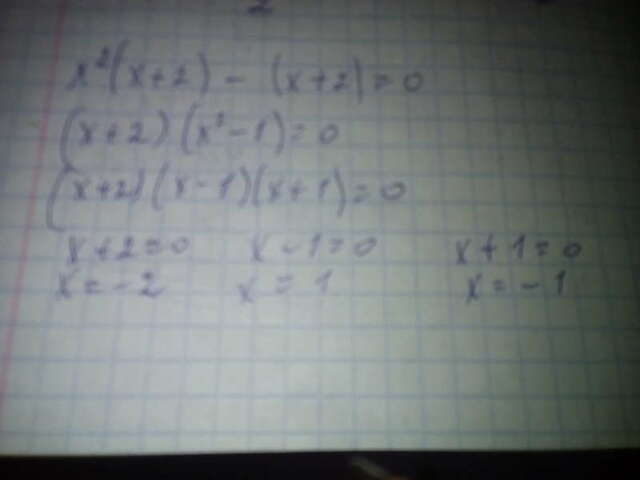 x²(x+2) - (x+2)=0
(x+2)(x²-1)=0
(x+2)(x-1)(x+1)=0
x+2=0 x-1=0 x+1=0
x=-2 x=1 x=-1